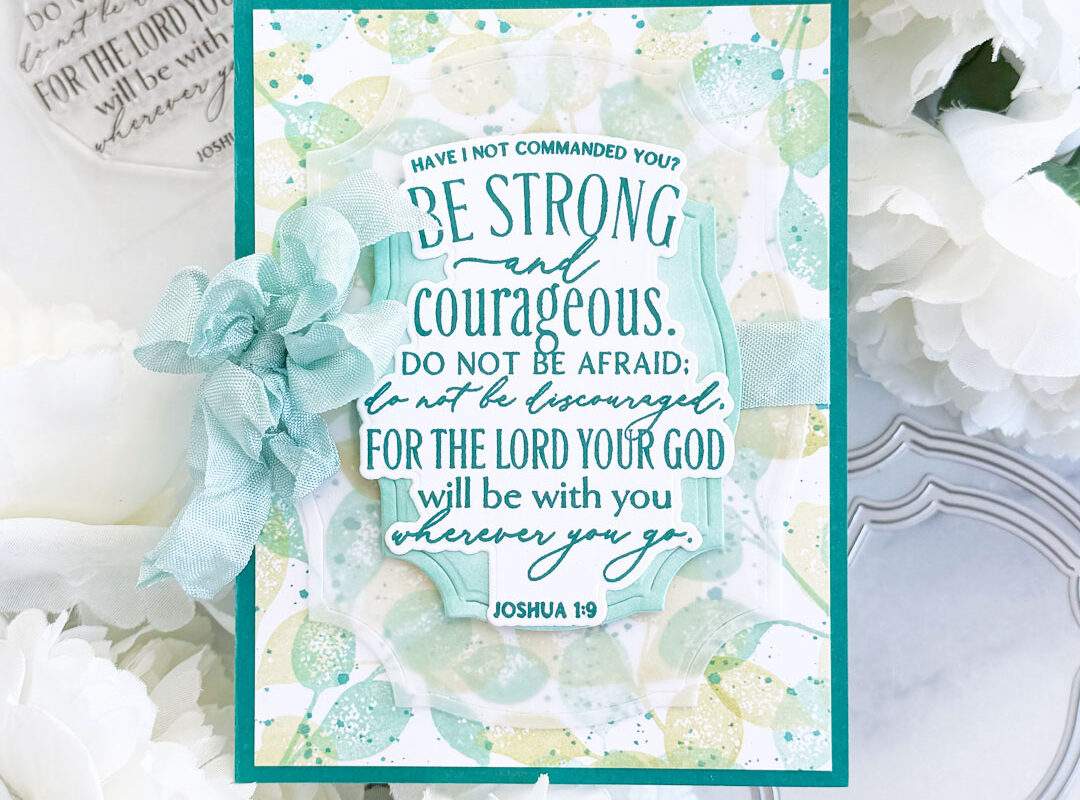 DO NO
do not be
FOR THE LORD YOU
will be with
wherever yo
JOSHU
HAVE I NOT COMMANDED YOU?
BE STRONG
and
courageous.
DO NOT BE AFRAID;
do not be discouraged,
FOR THE LORD YOUR GOD
will be with you
wherever you go.
JOSHUA 1:9